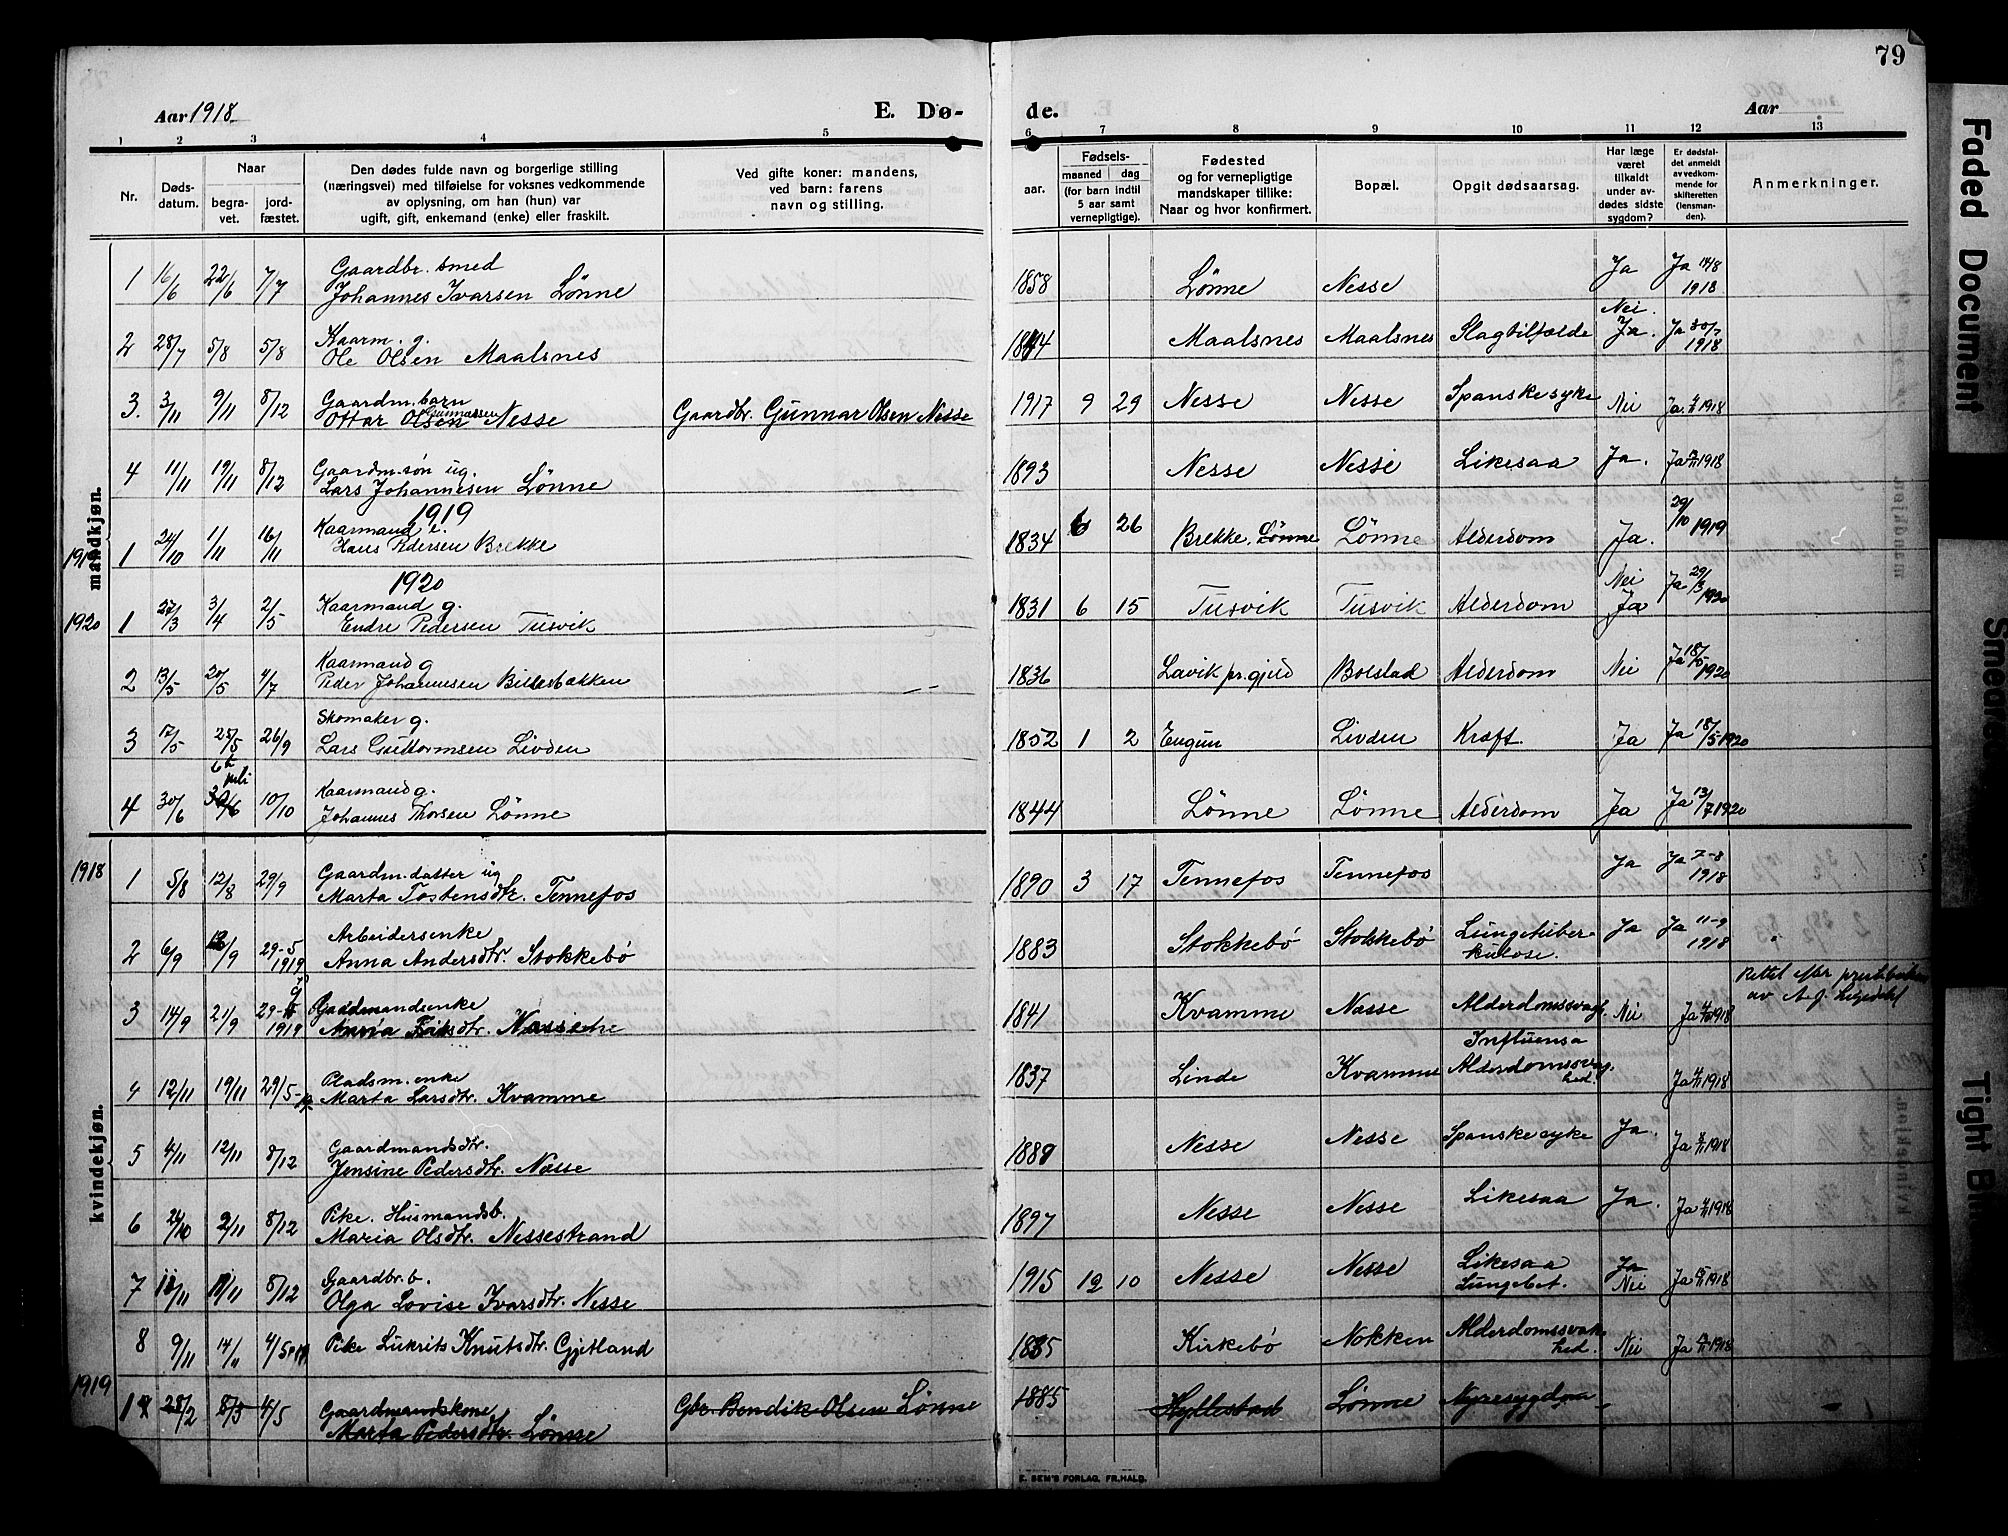 79
Aar 1918
E. Dø-
de.
Aar
1 2 3 4 5 6 7 8 9 10 11 12 13
Nr.
Døds-
datum.
Naar
begra-
vet.
jord-
fæstet.
Den dødes fulde navn og borgerlige stilling
(næringsvei) med tilføielse for voksnes vedkommende
av oplysning, om han (hun) var
ugift, gift, enkemand (enke) eller fraskilt.
Ved gifte koner: mandens,
ved barn: farens
navn og stilling.
Fødsels-
aar.
maaned
dag
(for barn indtil
5 aar samt
vernepligtige).
Fødested
og for vernepligtige
mandskaper tillike:
Naar og hvor konfirmert.
Bopæl.
Opgit dødsaarsag.
Har læge
været
tilkaldt
under av-
dødes sidste
sygdom?
Er dødsfal-
det anmeldt
av vedkom-
mende for
skifteretten
(lensman-
den).
Anmerkninger.
mandkjøn.
Gaardbr. smed
1 16/6 22/6 7/7 Johannes Ivarsen Lønne 1858 Lønne Nesse Ja Ja 14/8 1918
Kaarm. g. Nei.
2 28/7 5/8 5/8 Ole Olsen Maalsnes 1844 Maalsnes Maalsnes Slagtilfælde Ja. Ja 30/7 1918
Gaardm. barn
Gunnarsen
3. 3/11 9/11 8/12 Ottar Olsen Nesse Gaardbr. Gunnar Olsen Nesse 1917 9 29 Nesse Nesse Spanskesyke Nei Ja 1918
Gaardm. søn ug.
4 11/11 19/11 8/12 Lars Johannesen Lønne 1893 Nesse Nesse Likesaa Ja. Ja 1918
1919
Kaarmand e.
1 24/10 1/11 16/11 Hans Pedersen Brekke 1834 6 26 Brekke, Lønne Lønne Alderdom Ja. 29/10 1919
1920
1920 Kaarmand g. Nei
1 27/3 3/4 2/5 Endre Pedersen Tusvik 1831 6 15 Tusvik Tusvik Alderdom Ja Ja 29/3 1920
Kaarmand g
2 13/5 20/5 4/7 Peder Johannesen 1836 Lavik pr.gjeld Bolstad Alderdom Nei Ja 18/5 1920
Skomaker g.
3 17/5 25/5 26/9 Lars Guttormsen Livden 1852 1 2 Engun Livden Kræft. Ja Ja 18/5 1920
6te juli
Kaarmand g.
4 30/6 30/6 10/10 Johannes Thorsen Lønne 1844 Lønne Lønne Alderdom Ja Ja 13/7 1920
kvindekjøn.
1918 Gaardm. datter ug
1 5/8 12/8 29/9 Marta Tostensdtr. Tennefos 1890 3 17 Tennefos Tennefos Ja Ja 7-8 1918
Arbeidersenke
2 6/9 13/9 29-5 1919 Anna Andersdtr. Stokkebø 1883 Stokkebø Stokkebø Lungetuber-
kulose. Ja Ja 11-9 1918
Gaardmandsenke
3 14/9 21/9 1919 Anna 1841 Kvamme Nesse Alderdomssvagh. Nei Ja 1918 Rettet efter presteboken
av
Influensa
Pladsm. enke
4 12/11 19/11 29/5-19 Marta Larsdtr. Kvamme 1837 Linde Kvamme Alderdomssvag-
hed. Ja 1918
Gaardmandsdtr.
5 4/11 12/11 8/12 Jensine Pedersdtr. Nesse 1889 Nesse Nesse Spanskesyke Ja. Ja 1918
Pike. Husmandsb.
6 24/10 2/11 8/12 Maria Olsdtr. Nessestrand 1897 Nesse Nesse Likesaa Ja. Ja 1918
Gaardbr. b. Ja
7 11/11 8/12 Olga Lovise Ivarsdtr. Nesse 1915 12 10 Nesse Nesse Likesaa
Lungebet. Nei Ja 1918
8 9/11 14/11 4/5 Pike Lukrits Knutsdtr. Gjetland 1835 Kirkebø Nokken Alderdomssvak-
hed. Nei Ja 1918
1919 Gaardmandskone
1 28/2 8/3 4/5 Marta Pedersdtr. Lønne Gbr. Bendik Olsen Lønne 1885 Hyllestad Lønne Nyresygdom
E. SEM'S FORLAG, FR.HALD.
Faded Document
Smeared
Tight